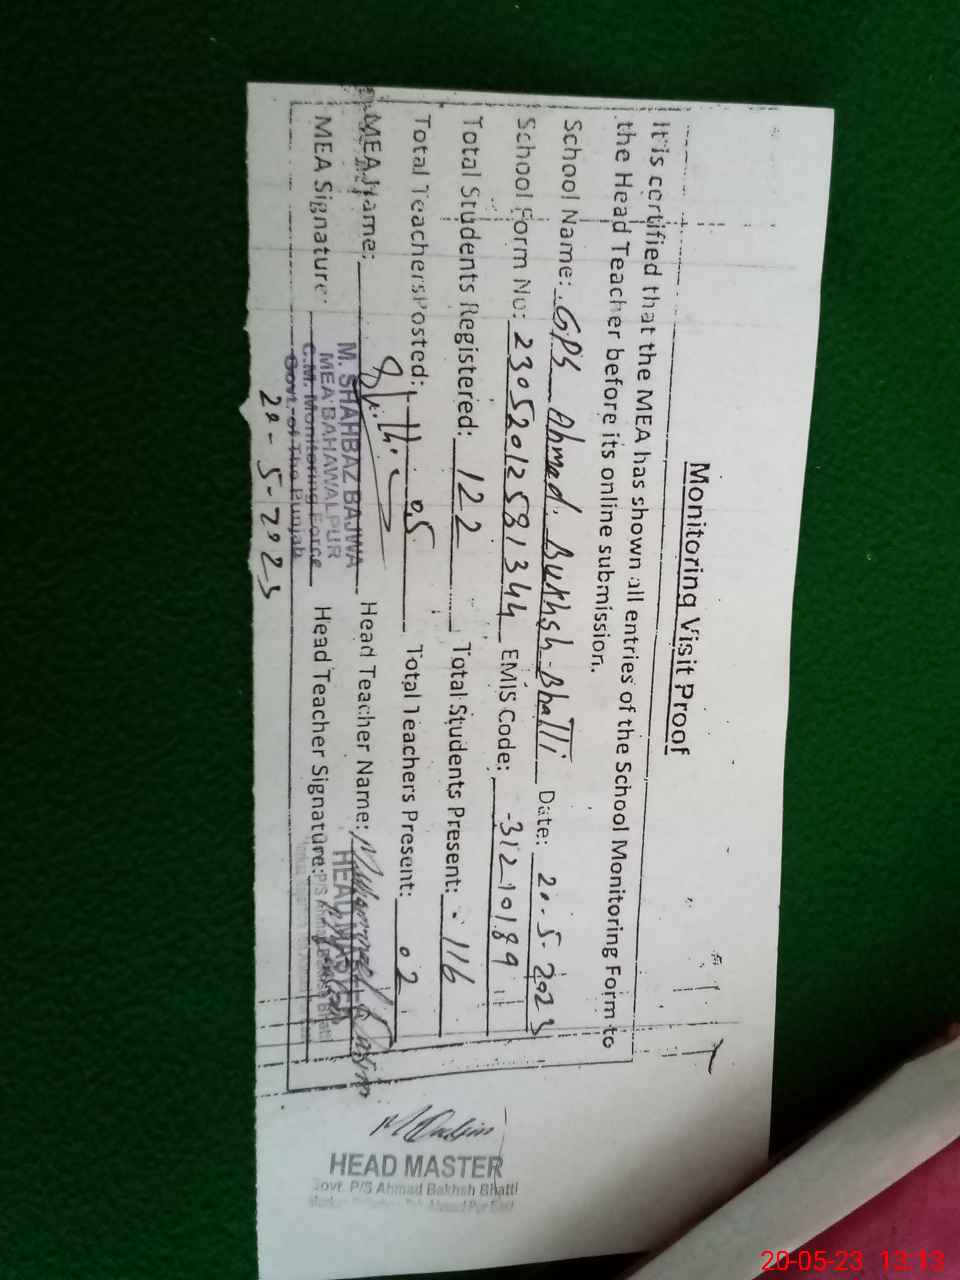 Monitoring Visit Proof
It is certified that the MEA has shown all entries of the School Monitoring Form to
the Head Teacher before its online submission.
School Name: GPS Ahmad Bukhsh Bhatti Date: 20-5-2023
School Form No: 23052012581344 EMIS Code: 31210189
Total Students Registered: 122 Total Students Present: 116
Total Teachers Posted: 05 Total Teachers Present: 02
MEA Name: M. SHAHBAZ BAJWA Head Teacher Name: Muhammad Qasim
MEA BAHAWALPUR HEAD MASTER
MEA Signature: C.M. Monitoring Force Head Teacher Signature: P/S Ahmad Bakhsh Bhatti
Govt. of The Punjab
20-5-2023
M Qasim
HEAD MASTER
Govt. P/S Ahmad Bakhsh Bhatti
Ahmad Pur East
20-05-23 13:13